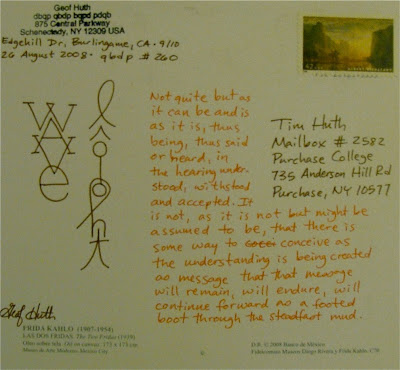 Geof Huth
dbqp qbdp bqpd pdqb
875 Central Parkway
Schenectady, NY 12309 USA
Edgehill Dr, Burlingame, CA · 9/10
26 August 2008 · qbdp # 260
Not quite but as
it can be and is
as it is, thus
being, thus said
or heard, in
the hearing under-
stood, withstood
and accepted. It
is not, as it is not but might be
assumed to be, that there is
some way to conceive as
the understanding is being created
as message that that message
will remain, will endure, will
continue forward as a footed
boot through the steadfast mud.
Tim Huth
Mailbox # 2582
Purchase College
735 Anderson Hill Rd
Purchase, NY 10577
Wave
light
Geof Huth
FRIDA KAHLO (1907-1954)
LAS DOS FRIDAS, The Two Fridas (1939)
Óleo sobre tela, Oil on canvas, 173 x 173 cm.
Museo de Arte Moderno, México City
6
D.R. © 2008 Banco de México
Fideicomiso Museos Diego Rivera y Frida Kahlo. C78